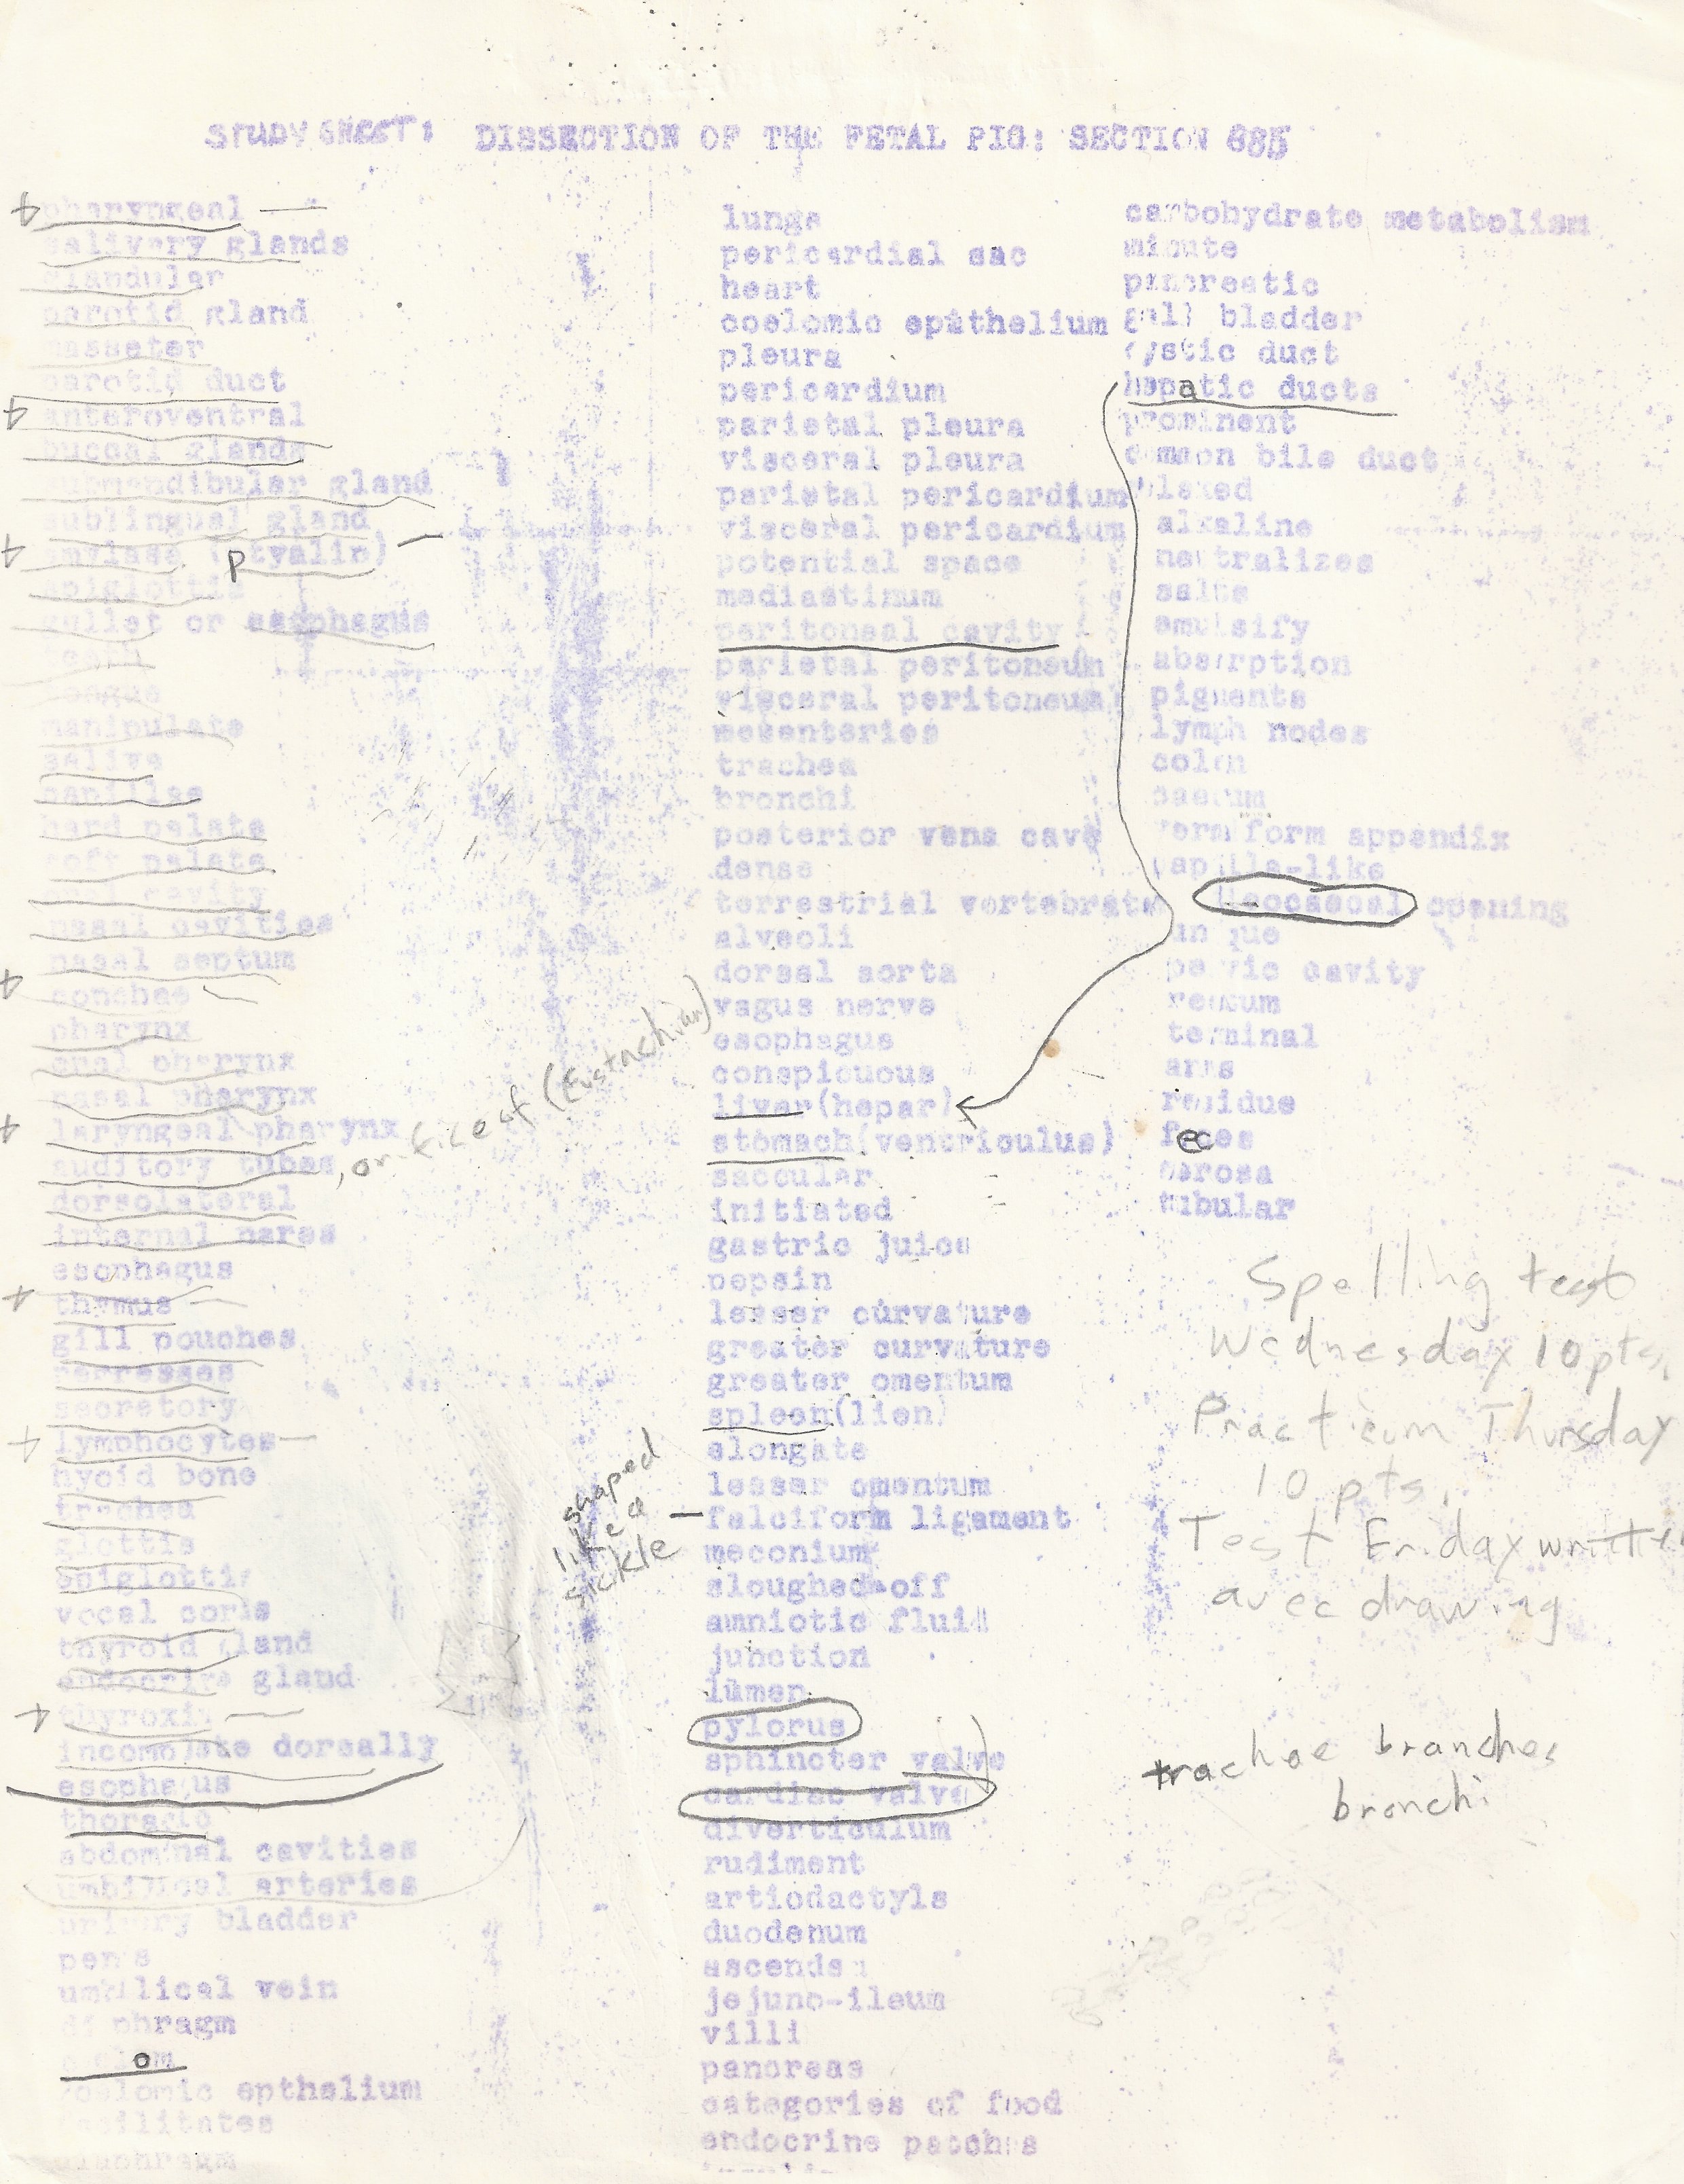 STUDY SHEET: DISSECTION OF THE FETAL PIG: SECTION
pharyngeal
salivery glands
glandular
parotid gland
masseter
parotid duct
anteroventral
buccal glands
submandibular gland
sublingual gland
amylase (ptyalin)
epiglottis
gullet or esophagus
teeth
tongue
manipulate
saliva
papillae
hard palate
soft palate
oral cavity
nasal cavities
nasal septum
conchae
pharynx
oral pharynx
nasal pharynx
laryngeal pharynx
auditory tubes, orifice of (Eustachian)
dorsolateral
internal nares
esophagus
thymus
gill pouches
regresses
secretory
lymphocytes
hyoid bone
trachea
glottis
epiglottis
vocal cords
thyroid gland
endocrine gland
thyroxin
incomplete dorsally
esophagus
thoracic
abdominal cavities
umbilical arteries
urinary bladder
penis
umbilical vein
diaphragm
coelom
coelomic epthelium
facilitates
diaphragm
lungs
pericardial sac
heart
coelomic epithelium
pleura
pericardium
parietal pleura
visceral pleura
parietal pericardium
visceral pericardium
potential space
mediastinum
peritoneal cavity
parietal peritoneum
visceral peritoneum
mesenteries
trachea
bronchi
posterior vena cava
dense
terrestrial vertebrate
alveoli
dorsal aorta
vagus nerve
esophagus
conspicuous
liver(hepar)
stomach(ventriculus)
saccular
initiated
gastric juice
pepsin
lesser curvature
greater curvature
greater omentum
spleen(lien)
elongate
lesser omentum
shaped
like a
sickle
falciform ligament
meconium
sloughed-off
amniotic fluid
junction
lumen
pylorus
sphincter valve
cardiac valve
diverticulum
rudiment
artiodactyls
duodenum
ascends
jejuno-ileum
villi
pancreas
categories of food
endocrine patches
carbohydrate metabolism
minute
pancreatic
gall bladder
cystic duct
hepatic ducts
prominent
common bile duct
alkaline
neutralizes
salts
emulsify
absorption
pigments
lymph nodes
colon
caecum
vermiform appendix
papilla-like
ileocaecal opening
unique
pelvic cavity
rectum
terminal
anus
residue
feces
serosa
tubular
Spelling test
Wednesday 10 pts.
Practicum Thursday
10 pts.
Test Friday written
avec drawing
trachae branches
bronchi